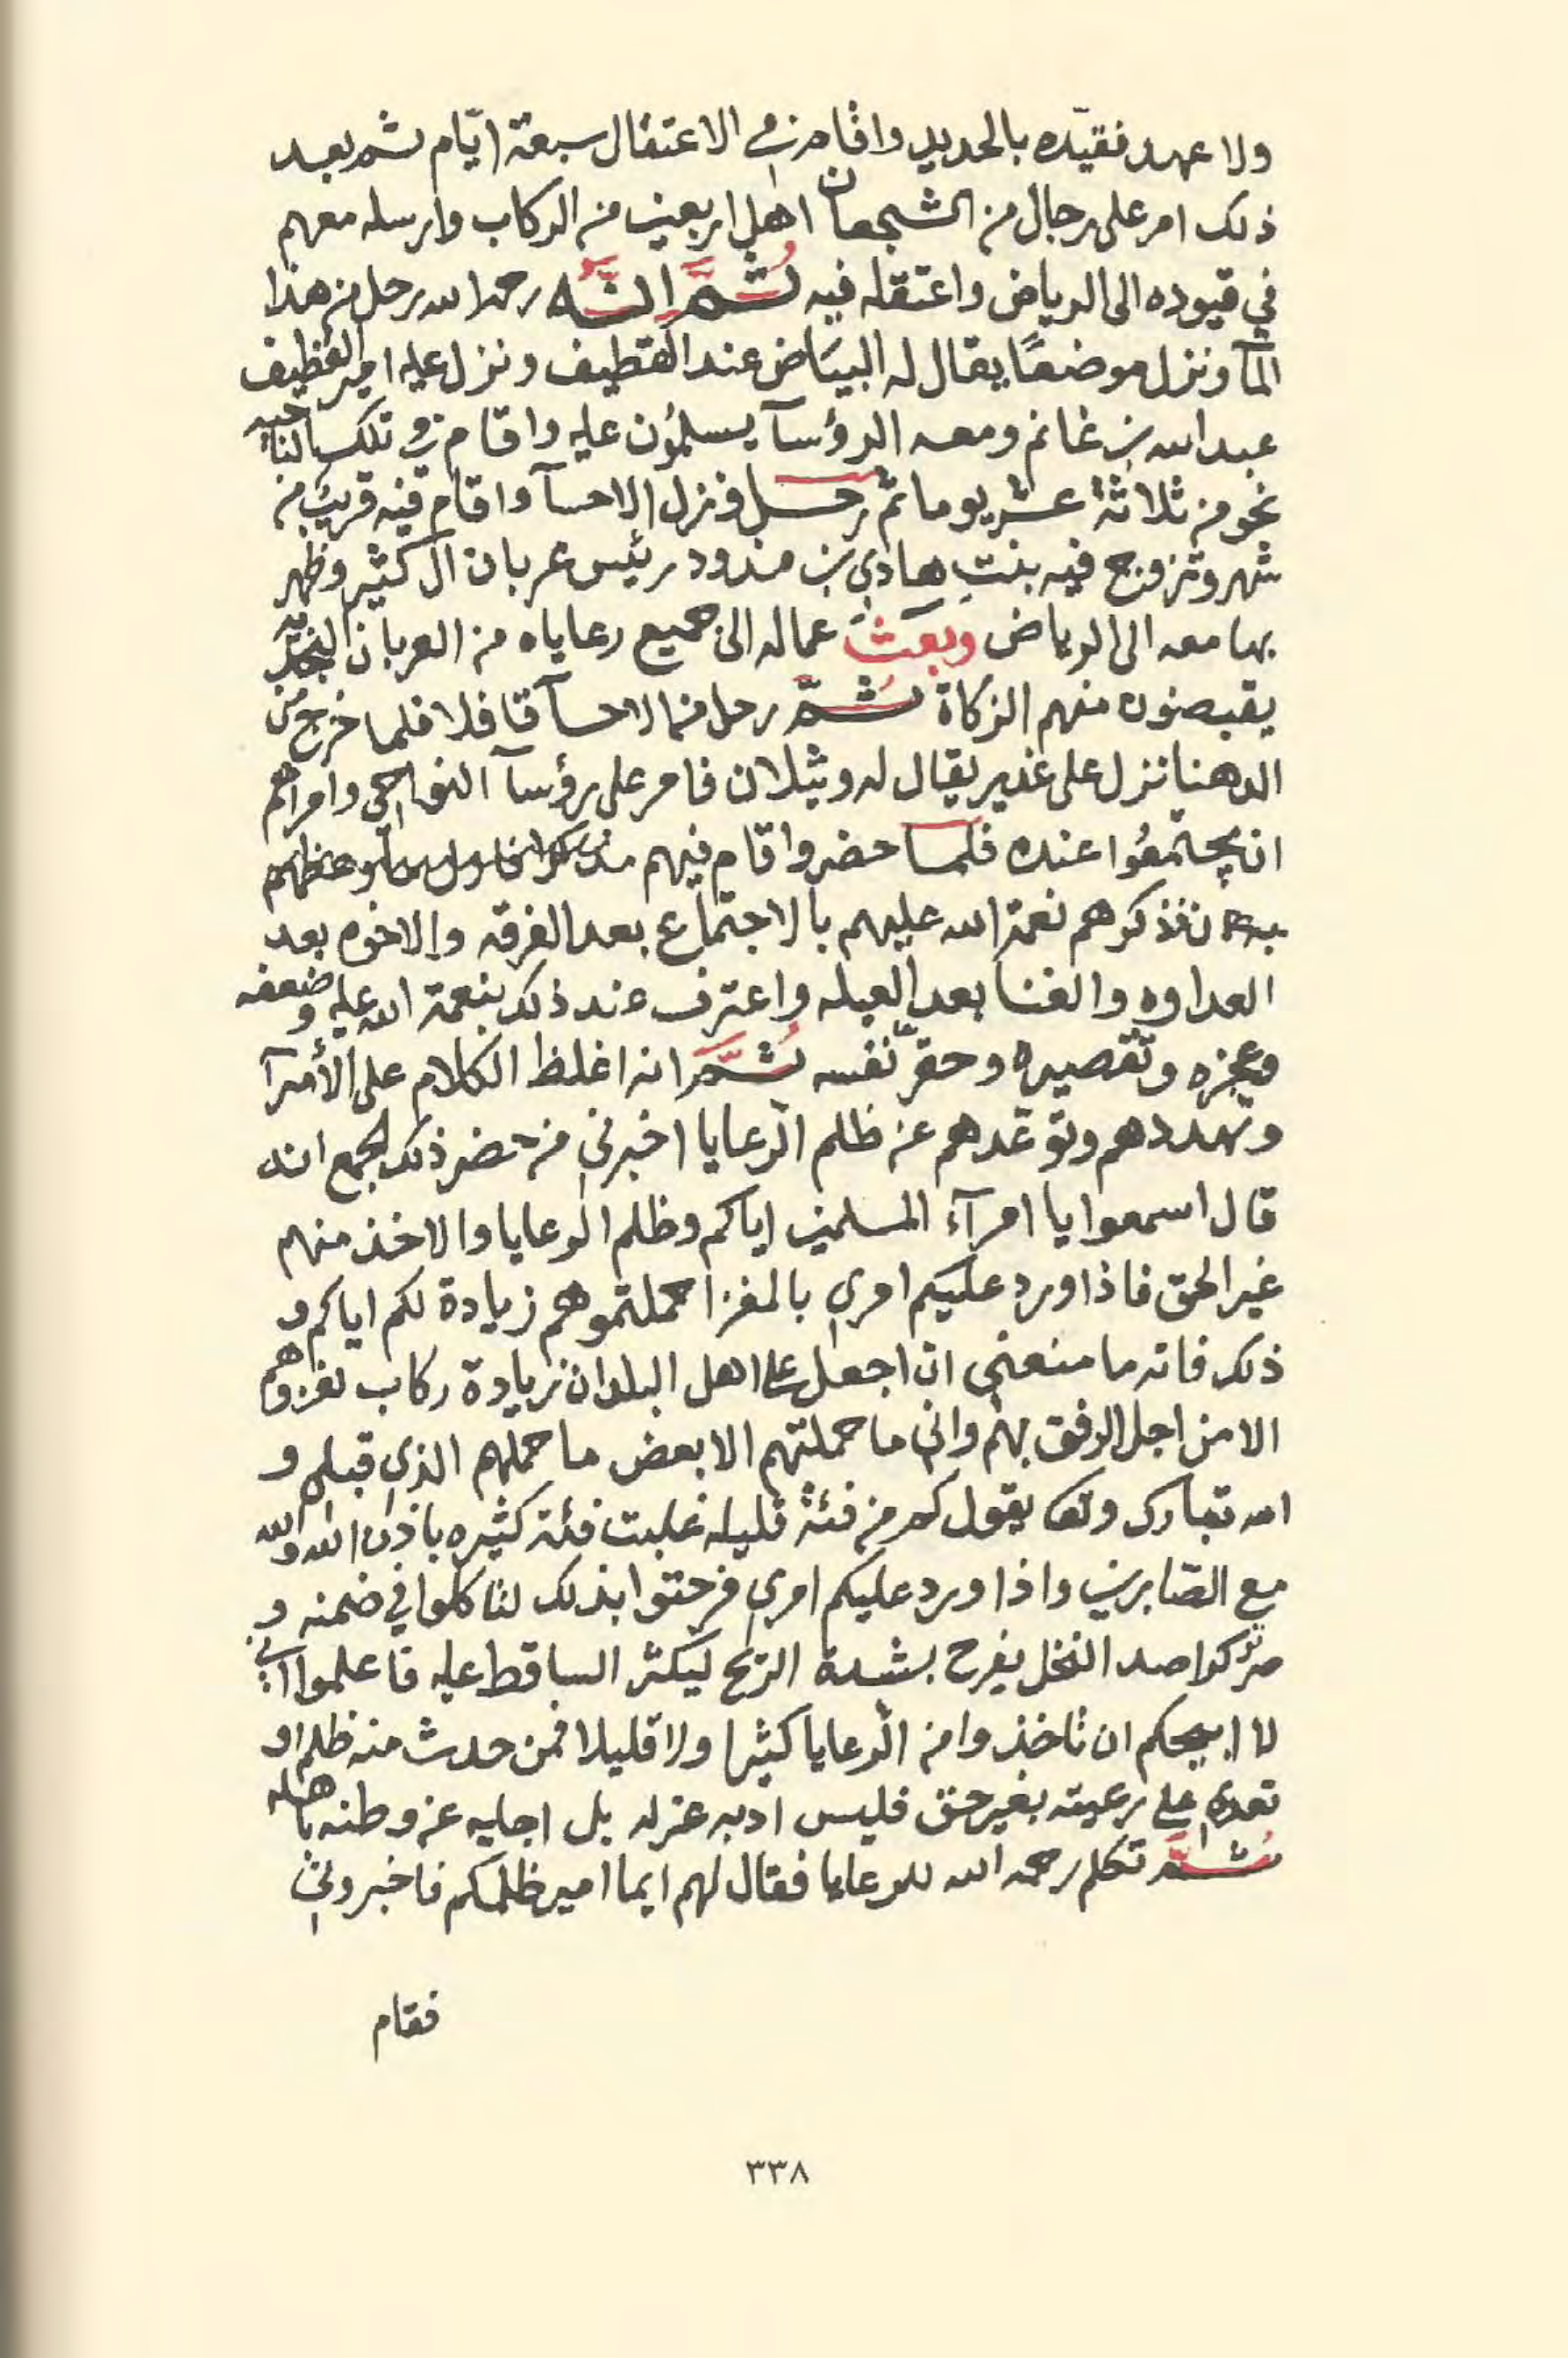 ولا عهد فقيّده بالحديد واقام في الاعتقال سبعة ايّام ثم بعد
ذلك امر على رجال من الشجعان اهل اربعين من الركاب وارسله معهم
في قيوده الى الرياض واعتقله فيه ثُمَّ انَّه رحمه الله رحل من هذا
المآ ونزل موضعًا يقال له البيَاض عند القطيف ونزل عليه امير القطيف
عبد الله بن غانم ومعه الرؤسآ يسلمُون عليه واقام في تلك الناحيه
نحو من ثلاثة عشر يوما ثمّ رحل ونزل الاحسآ واقام فيه قريب من
شهر وتزوج فيه بنتِ هادي بن مذود رئيس عربان ال كثير وظهر
بها معه الى الرياض وبعَثَ عماله الى جميع رعاياه من العربان النجديه
يقبضون منهم الزكاة ثُمّ رحل من الاحسآ قافلا فلما خرج من
الدهنا نزل على غدير يقال له وثيلان فامر على رؤسآ النواحي وامراهم
ان يجتمعُوا عنده فلما حضروا قام فيهم ووعظهم
فذكرهم نعمة الله عليهم بالاجتماع بعد الفرقه والاخوه بعد
العداوه والغنا بعد العيله واعترف عند ذلك بنعمة الله عليه وضعفه
وعجزه وتقصيره وحقّر نفسه ثُمَّ انه اغلظ الكلام على الأمرآ
وتهددهم وتوعّدهم عن ظلم الرّعايا اخبرني من حضر ذلك الجمع انه
قال اسمعوا يا امرآء المسلمين اياكم وظلم الرعايا والاخذ منهم
غير الحق فاذا ورد عليكم امري بالمغزا حملتموهم زيادة لكم اياكم و
ذلك فانه ما منعني ان اجعل على اهل البلدان زيادة ركاب لغزوهم
الا من اجل الرفق بهم واني ما حملتهم الا بعض ما حملهم الذي قبلي و
الله تبارك وتعا يقول كم من فئة قليله غلبت فئة كثيره باذن الله والله
مع الصّابرين واذا ورد عليكم امري فرحتوا بذلك لتاكلوا في ضمنه و
صرتوا كراصد النخل يفرح بشدة الريح ليكثر الساقط عليه فاعلموا اني
لا ابيحكم ان تاخذوا من الرّعايا كثيرا ولا قليلا فمن حدث منه ظلم او
تعدي على رعيته بغير حق فليس ادبه عزله بل اجليه عن وطنه باهله
ثُمَّ تكلم رحمه الله للرعايا فقال لهم ايما امير ظلمكم فاخبروني
فقام
٣٣٨